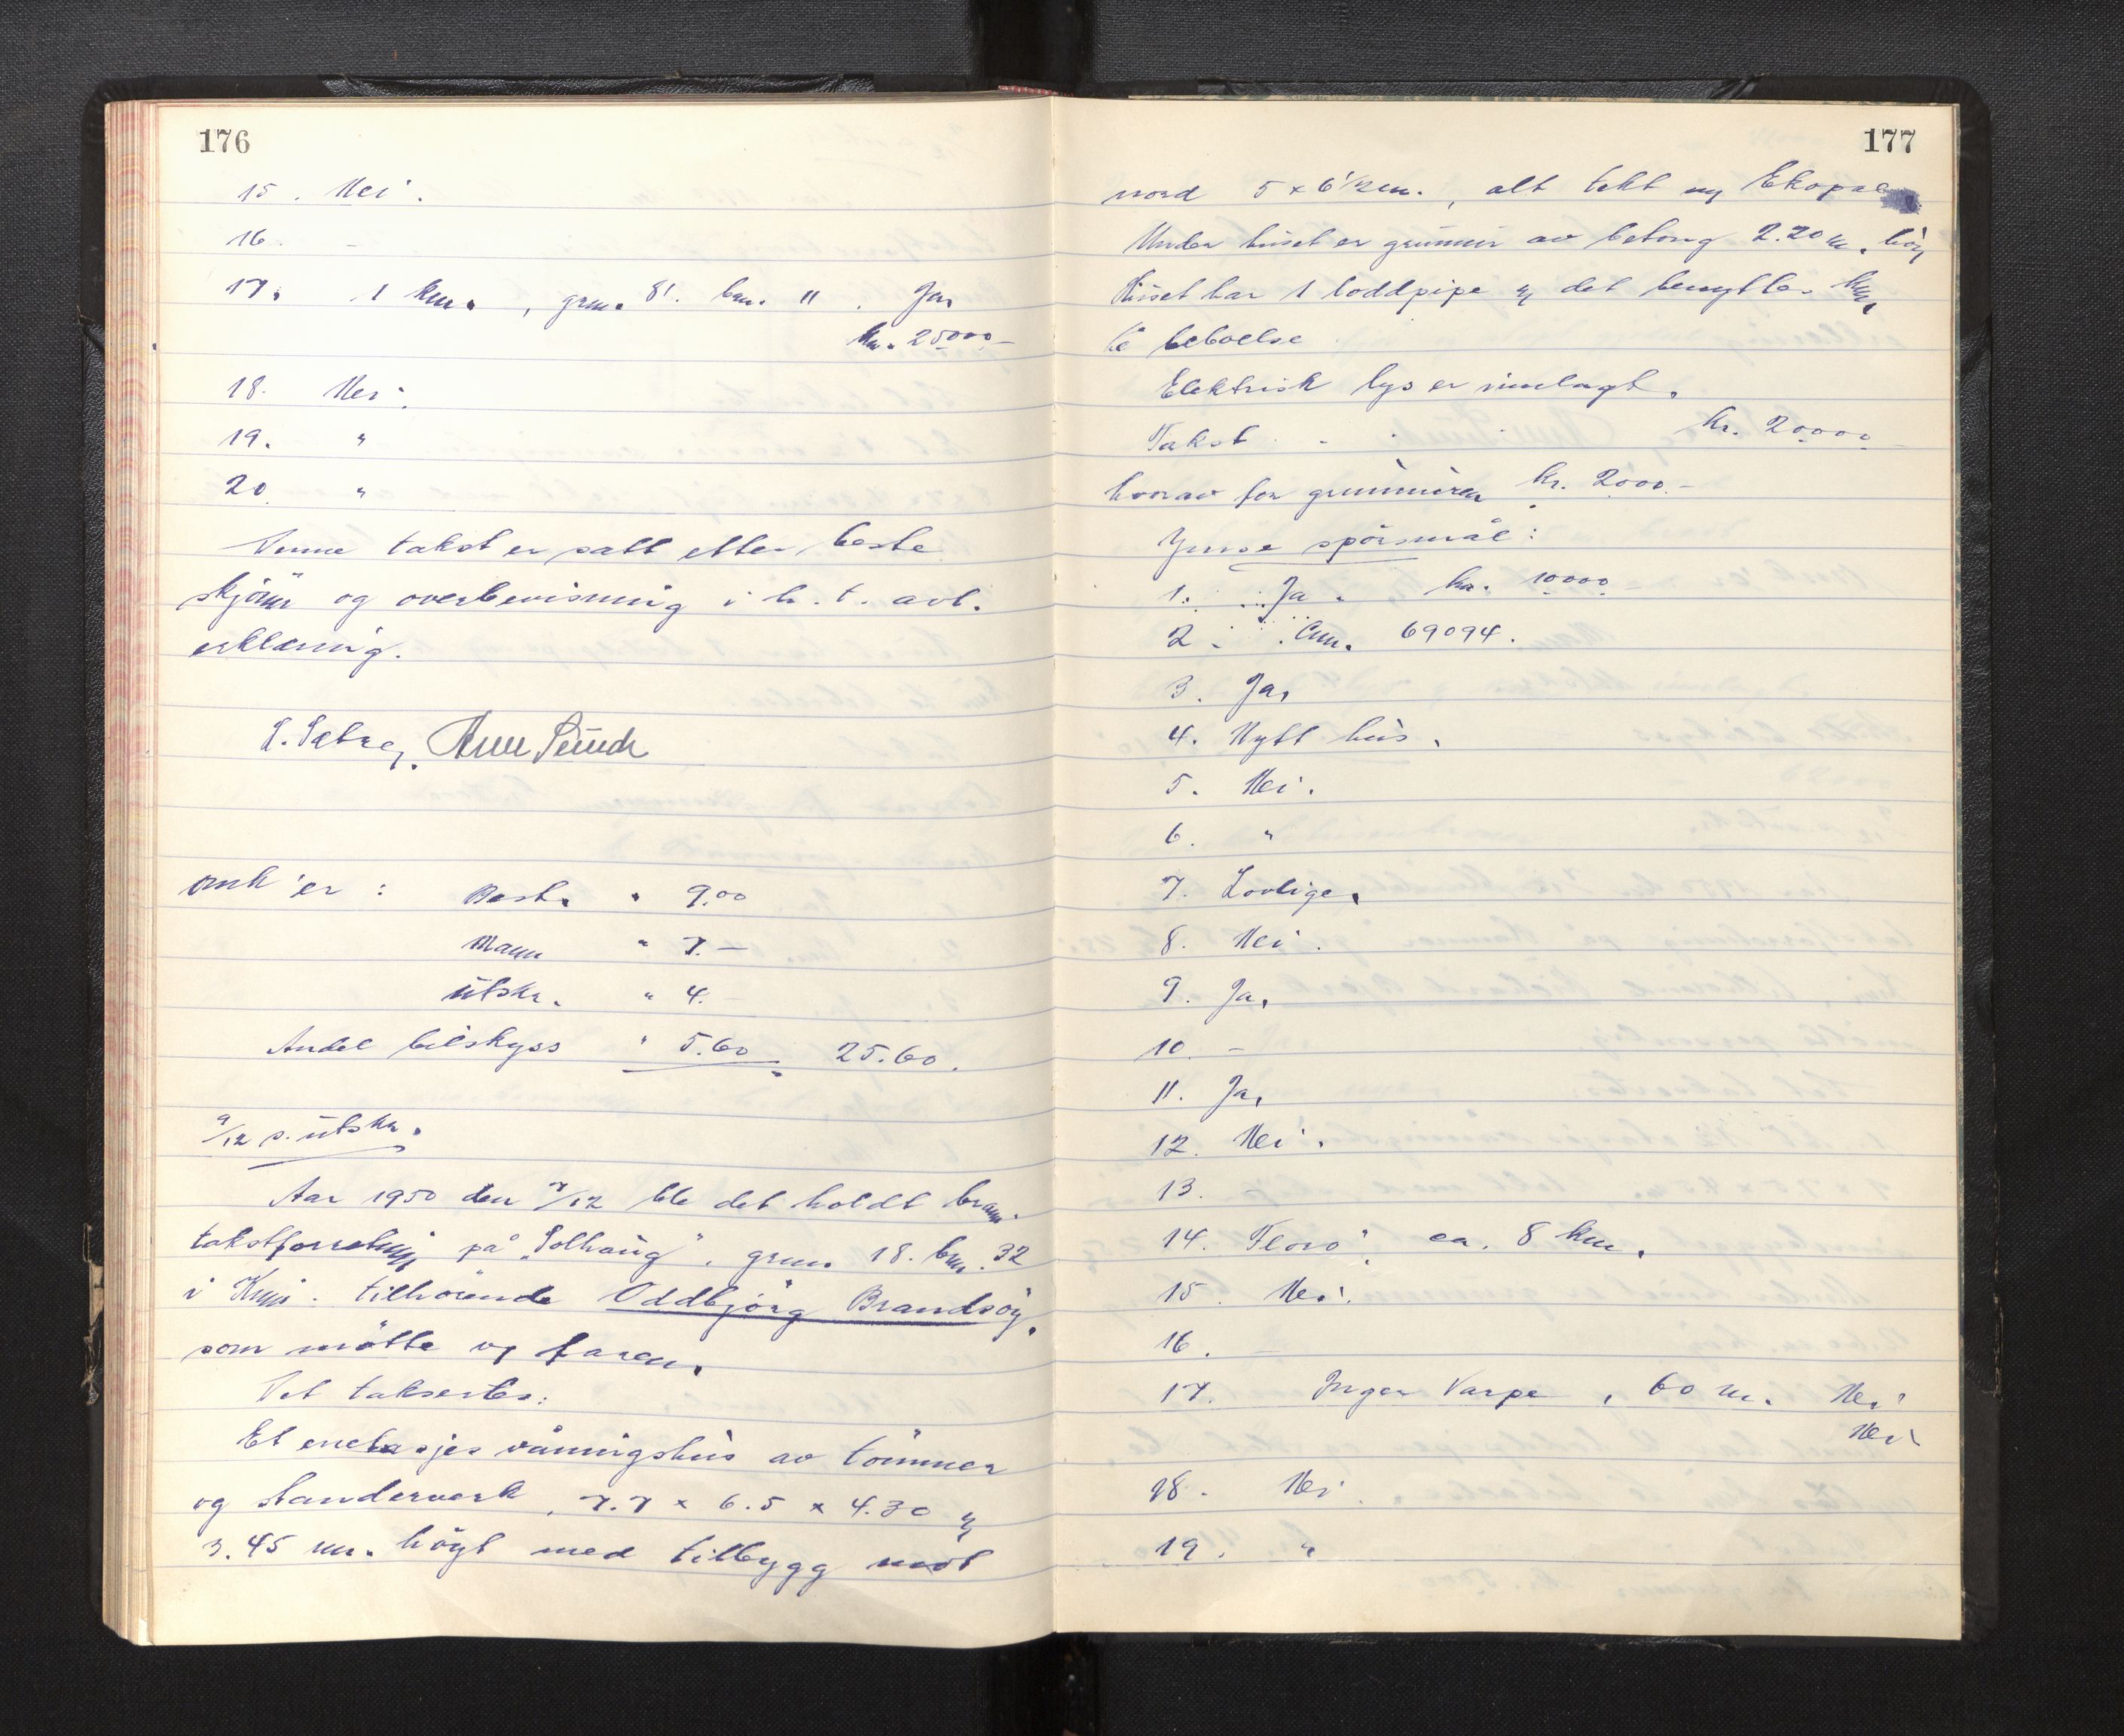 176
15. Nei.
16. -
17. 1 km., grn. 81. bnr. 11. Ja,
kr. 25000.-
18. Nei.
19. "
20. "
Denne takst er satt etter beste
skjönn og overbevisning i h.t. avl.
erklæring.
S. Sætre,
omk'er:
Best. " 9.00
Mann " 7.-
utskr. " 4.-
Andel bilskyss " 5.60 25.60.
9/12 s. utskr.
Aar 1950 den 7/12 ble det holdt brann-
takstforretning på "Solhaug", grn. 18. bnr. 32
i Kinn. tilhörende Oddbjörg Brandsöy,
som mötte ved faren.
Det takseres:
Et enetasjes våningshus av tömmer
og standerverk, 7.7 x 6.5 x 4.30 og
3.45 m. höyt med tilbygg mot
177
nord 5 x 6 1/2 m., alt tekt m,
Under huset er grunnur av betong 2.20 m. höy,
Huset har 1 loddpipe og det benyttes kun
til beboelse
Elektrisk lys er innlagt.
Takst - - - kr. 20000.-
hvorav for grunnuren kr. 2000.-
Ymse spörsmål:
1. Ja. kr. 10000.-
2. 69094.
3. Ja,
4. Nytt hus.
5. Nei.
6. "
7. Lovlige.
8. Nei.
9. Ja,
10. -
11. Ja,
12. Nei.
13. -
14. Florö, ca. 8 km.
15. Nei.
16. -
17. Inger Varpe, 60 m. Nei
Nei
18. Nei.
19. "